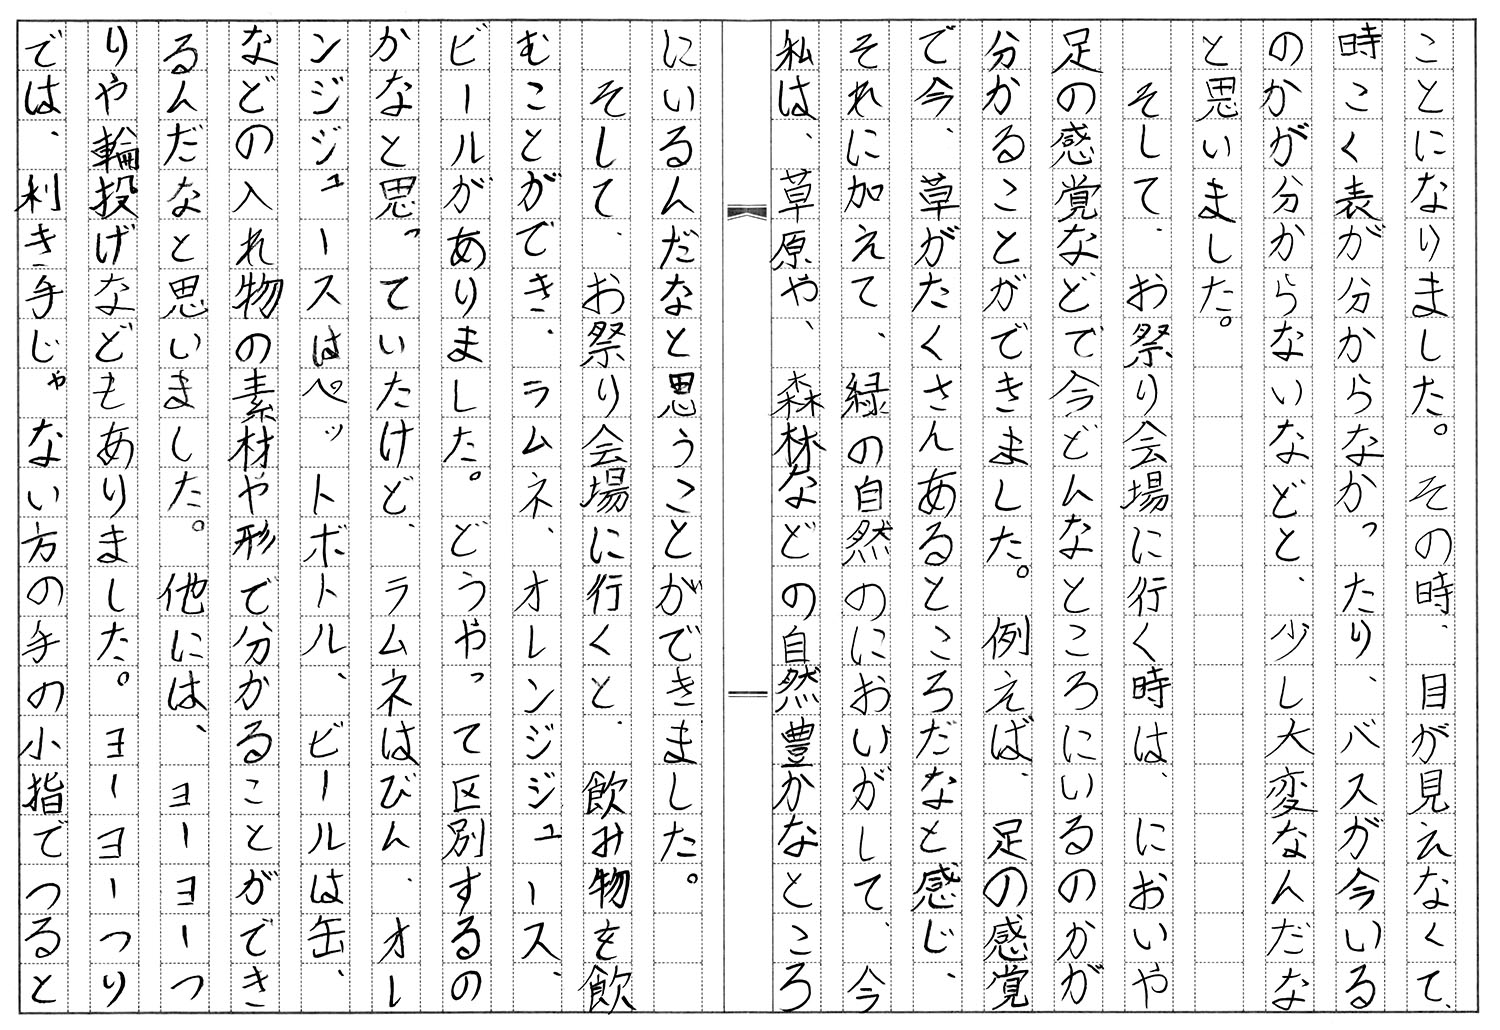 ことになりました。その時、目が見えなくて、
時こく表が分からなかったり、バスが今いる
のかが分からないなどと、少し大変なんだな
と思いました。
そして、お祭り会場に行く時は、においや
足の感覚などで今どんなところにいるのかが
分かることができました。例えば、足の感覚
で今、草がたくさんあるところだなと感じ、
それに加えて、緑の自然のにおいがして、今
私は、草原や、森林などの自然豊かなところ
にいるんだなと思うことができました。
そして、お祭り会場に行くと、飲み物を飲
むことができ、ラムネ、オレンジジュース、
ビールがありました。どうやって区別するの
かなと思っていたけど、ラムネはびん、オレ
ンジジュースはペットボトル、ビールは缶、
などの入れ物の素材や形で分かることができ
るんだなと思いました。他には、ヨーヨーつ
りや輪投げなどもありました。ヨーヨーつり
では、利き手じゃない方の手の小指でつると